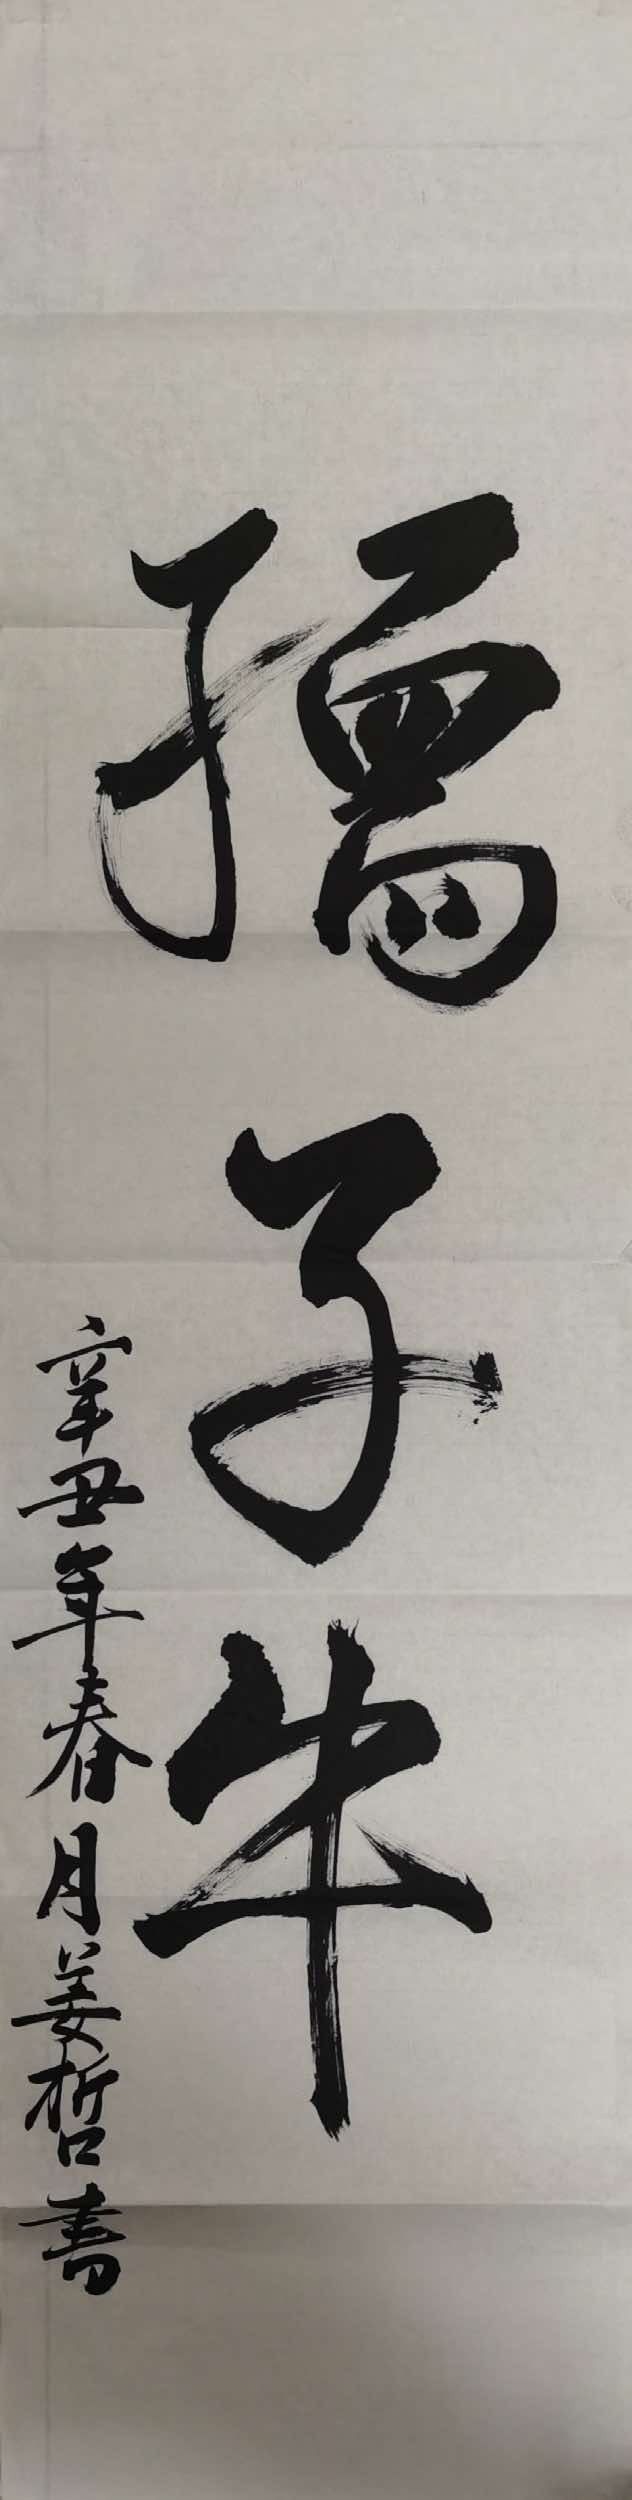 孺子牛
辛丑年春月姜哲書